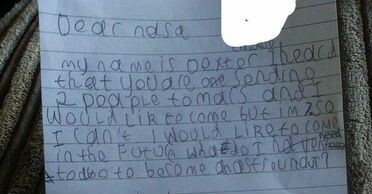 Dear nasa
my name is Dexter I heard
that you are sending
2 people to mars and I
would like to come but im 7 so
I can't I would like to come
in the future what do I
to do to become an astronaut?